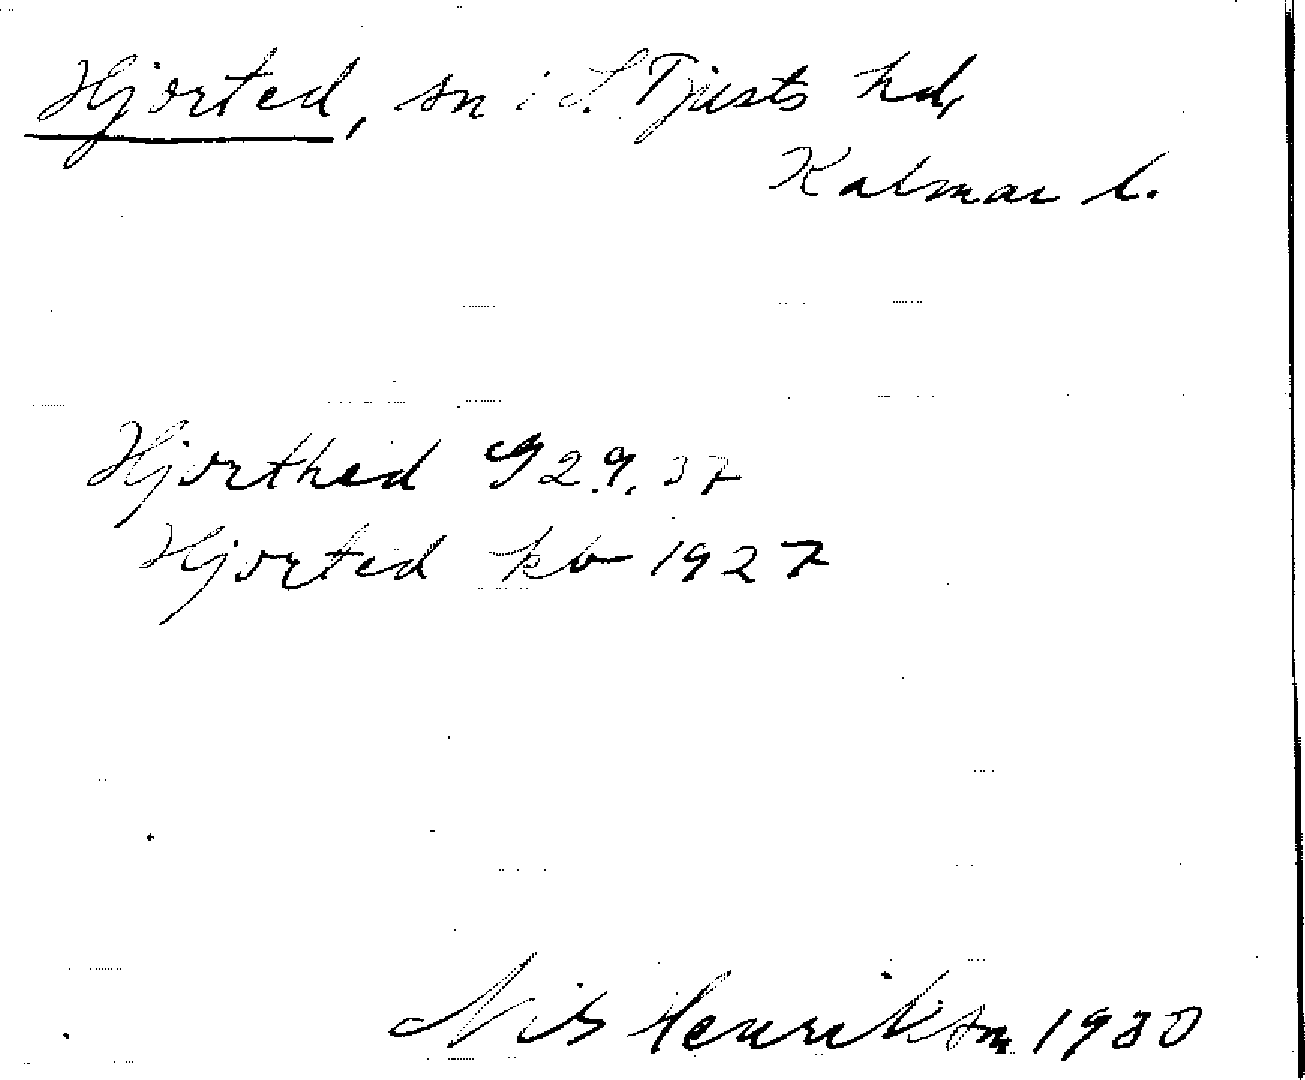 Hjorted, sn i S. Tjusts hd,
Kalmar l.
Hjorthed 37
Hjorted kb 1927
Nils Henrikson 1930